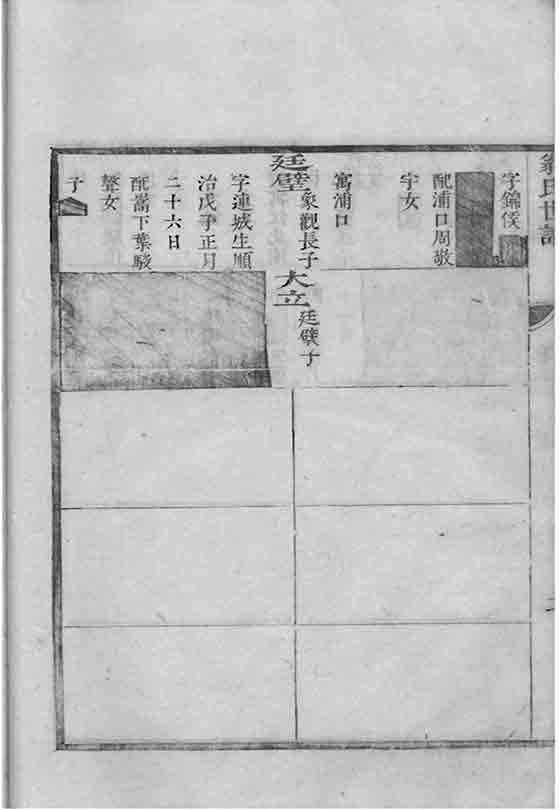 翁氏世譜
字錦僕
配浦口周敬
宇女
寓浦口
廷璧 象觀長子
字連城生順
治戊子正月
二十六日
配嵩下葉駿
聲女
子
大立 廷璧子